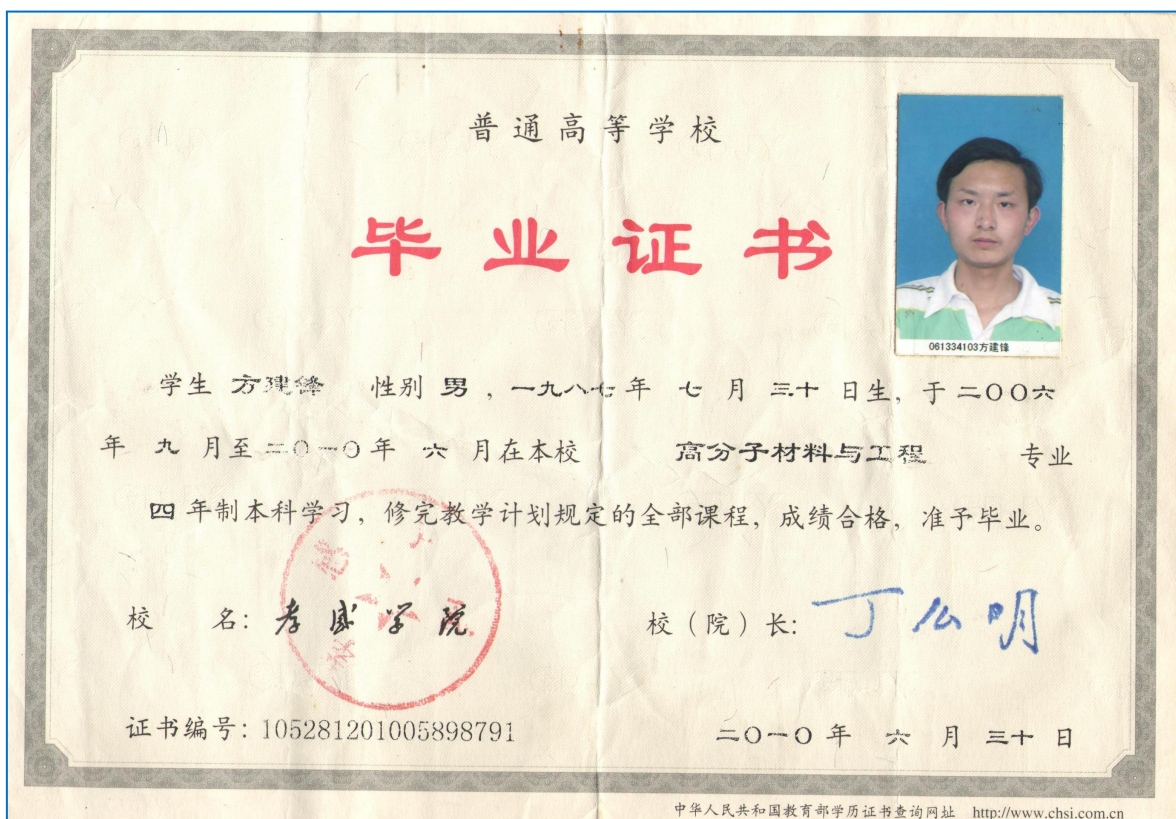 普通高等学校
毕业证书
061334103方建锋
学生 方建锋 性别 男 ，一九八七年 七 月 三十 日生，于 二〇〇六
年 九 月至 二〇一〇年 六 月在本校 高分子材料与工程 专业
四 年制本科学习，修完教学计划规定的全部课程，成绩合格，准予毕业。
校 名：孝感学院 校（院）长：丁公明
证书编号：105281201005898791 二〇一〇 年 六 月 三十 日
中华人民共和国教育部学历证书查询网址 http://www.chsi.com.cn